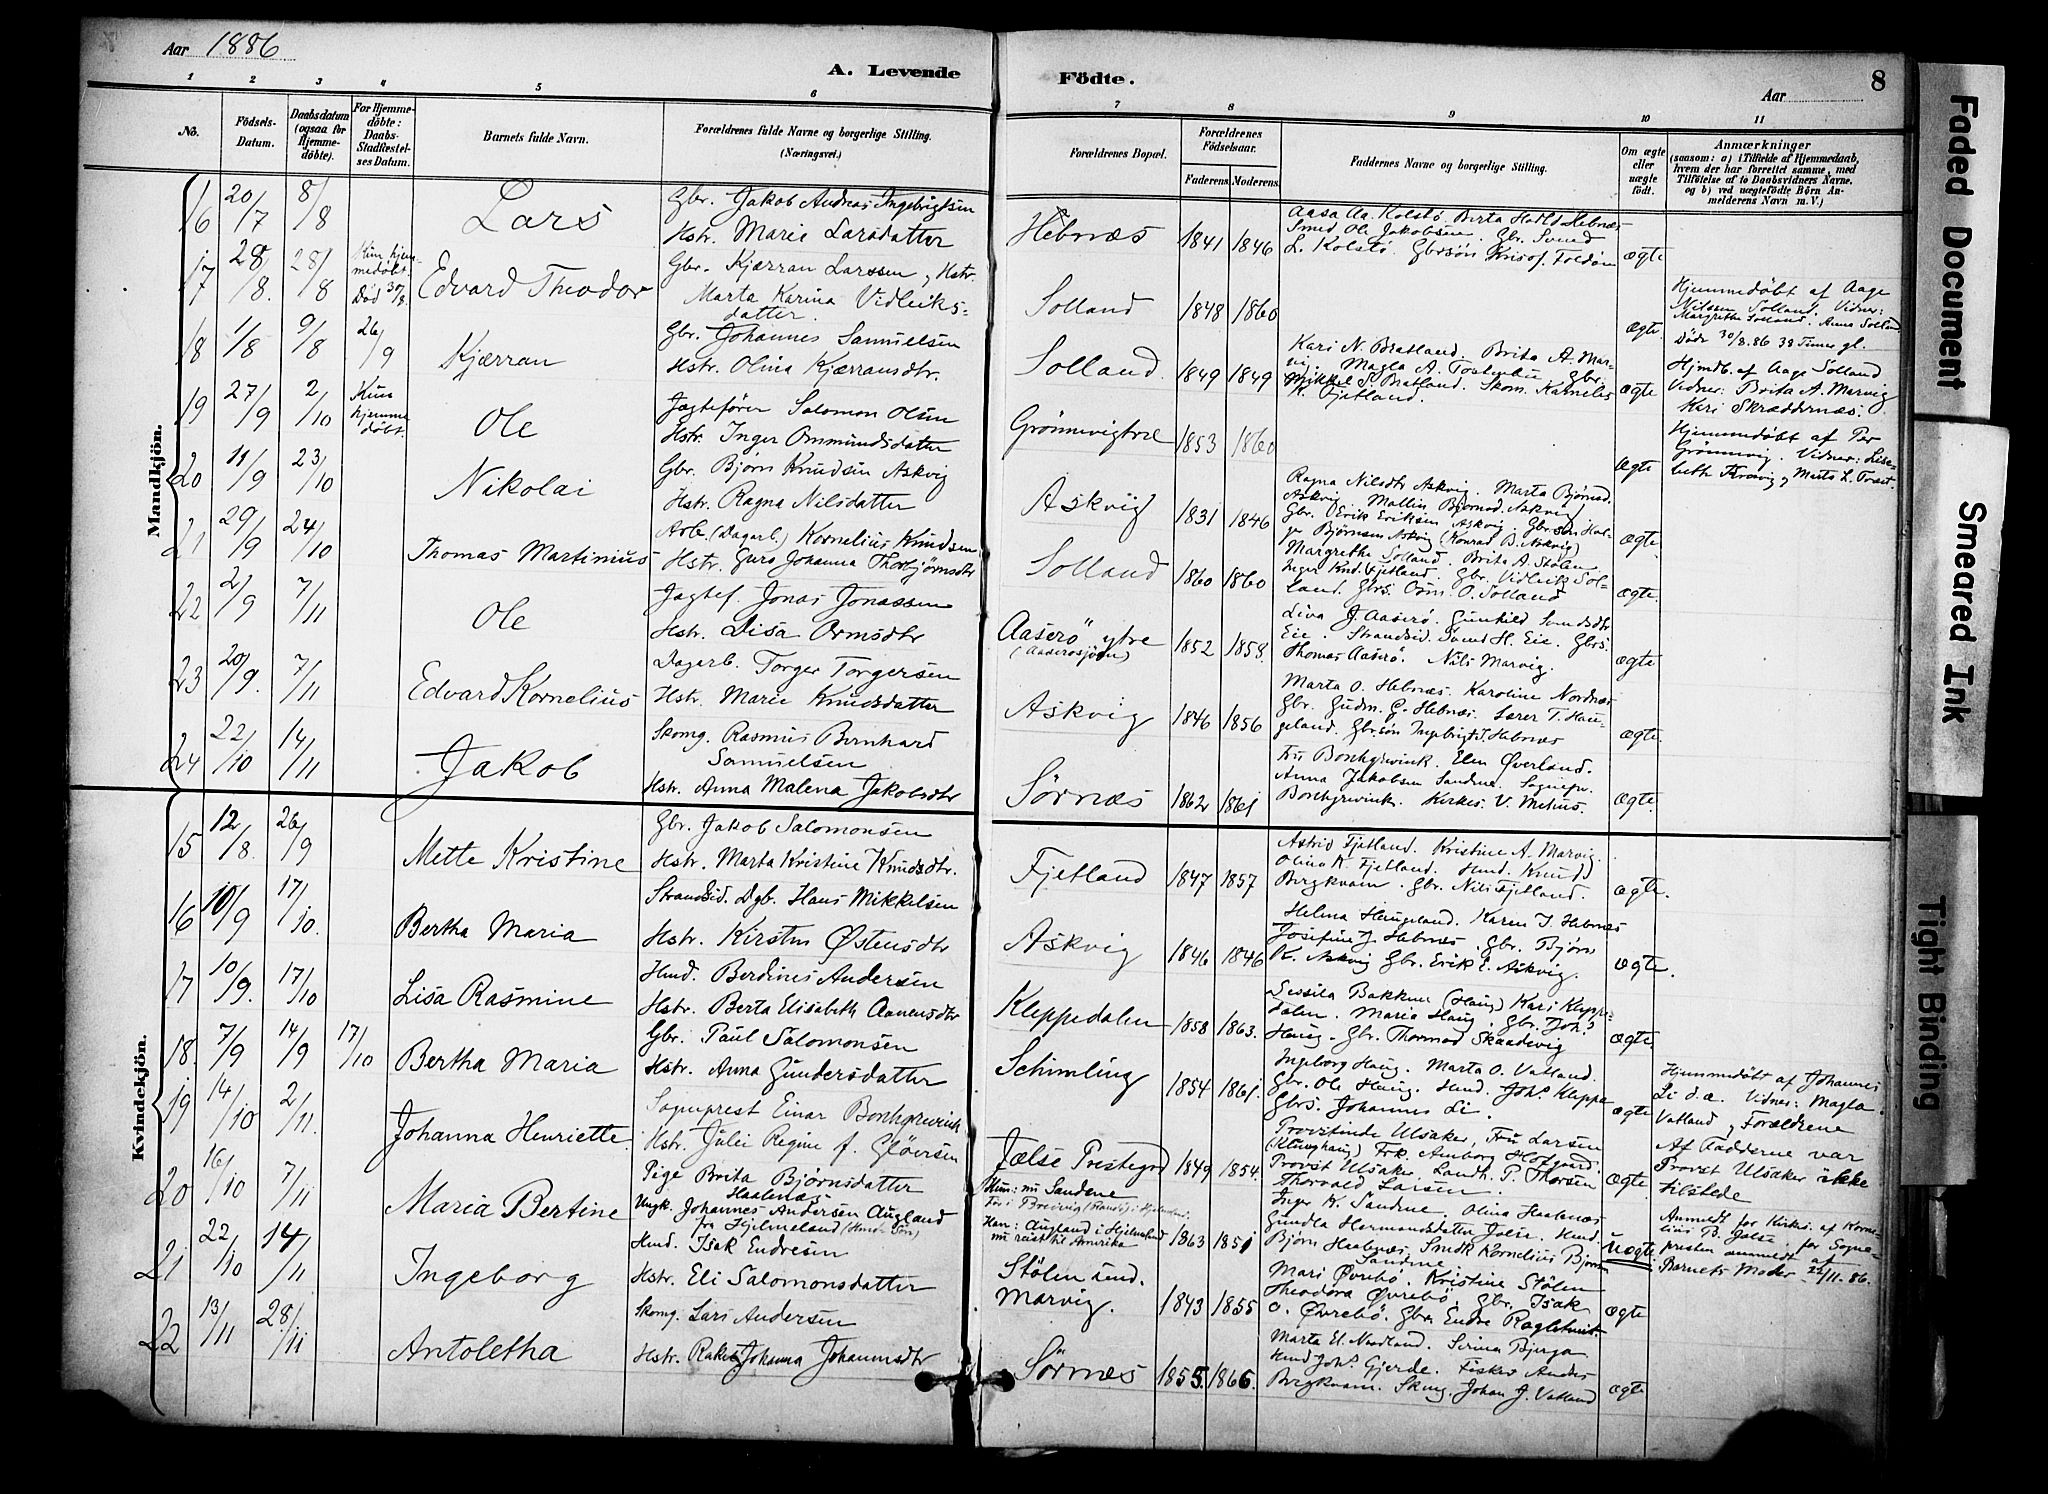 Aar 1886
A. Levende Födte.
Aar 8
1 2 3 4 5 6 7 8 9 10 11
No. Födsels-Datum. Daabsdatum (ogsaa for Hjemmedöbte). For Hjemmedöbte: Daabs-Stadfæstelses Datum. Barnets fulde Navn. Forældrenes fulde Navne og borgerlige Stilling. (Næringsvei.) Forældrenes Bopæl. Forældrenes Födselsaar. Faderens. Moderens. Faddernes Navne og borgerlige Stilling. Om ægte eller uægte födt. Anmærkninger (saasom: a) i Tilfælde af Hjemmedaab, hvem der har forrettet samme, med Tilföielse af to Daabsvidners Navne, og b) ved uægtefödte Börn Anmelderens Navn m. V.)
Mandkjön.
16 20/7 8/8 Lars Gbr. Jakob Andreas Ingebrigtsen
Hstr. Marie Larsdatter Hebnæs 1841 1846 ægte
Aasa Aa. Kolstø. Berta Hebnæs
Smed Ole Jakobsen. Gbr. Svend
L. Kolstø. Gbrsøn Foldøen
17 28/8. 28/8 Kun hjemmedøbt. Død 30/8. Edvard Theodor Gbr. Kjærran Larssen, Hstr.
Marta Karina Vidleiks-
datter. Solland 1848 1860 ægte.
Hjemmedøbt af Aage
Nilsen Solland. Vidner:
Margrethe Solland. Anna Solland
Døde 30/8.86 38 Timer gl.
18 1/8 9/8 26/9 Kjærran Gbr. Johannes Samuelsen
Hstr. Olina Kjærransdtr. Solland 1849 1849 ægte
Kari N. Bratland. Brita A. Mar-
vig. Magla A. Gbr.
Mikkel S. Bratland. Skom. Kornelius
K. Fjetland.
Hjmdb. af Aage Solland
Vidner: Brita A. Marvig
Kari Skræddernæs.
19 27/9 2/10 Kun hjemmedøbt. Ole Jagtefører Salomon Olsen
Hstr. Inger Ommundsdatter Grønnevigtræ 1853 1860 ægte
Hjemmedøbt af Per
Grønnevig. Vidner: Lise-
beth
20 11/9 23/10 Nikolai Gbr. Bjørn Knudsen Askvig
Hstr. Ragna Nilsdatter Askvig 1831 1846 ægte.
Ragna Nilsdtr Askvig. Marta Bjørnsd.
Askvig. Mallin Bjørnsd. Askvig
Gbr. Erik Eriksen Askvig. Gbrsøn Hel-
ge Bjørnsen Askvig (Konrad B. Askvig)
21 29/9 24/10 Thomas Martinius Arb. (Dagarb.) Kornelius Knudsen
Hstr. Guro Johanna Thorbjørnsdtr Solland 1860 1860 ægte.
Margrethe Solland. Brita A. Stølen
Inger Knd. Fjetland. Gbr. Vidleik Sol-
land. Gbrs. Orm. O. Solland
22 2/9 7/11 Ole Jagtef. Jonas Jonassen
Hstr. Lisa Ormsdtr Aaserø ytre (Aaserøsjøen) 1852 1858. ægte
Liva J. Aaserø. Gunhild
Eie. Strandsid. Svend H. Eie. Gbrs.
Thomas Aaserø. Nils Marvig.
23 20/9. 7/11 Edvard Kornelius Dagarb. Torger Torgersen
Hstr. Marie Knudsdatter Askvig 1846 1856 ægte.
Marta O. Hebnæs. Karoline Nordnæs
Gbr. Gudm. G. Hebnæs. Lærer T. Hau-
geland. Gbrsøn Ingebrigt J. Hebnæs
24 22/10 14/11 Jakob Skomg. Rasmus Bernhard
Samuelsen
Hstr. Anna Malena Jakobsdtr Sørnæs 1862 1861 ægte.
Fru Bonhgrevink. Elen Øverland.
Anna Jakobsen Sandene. Sognepr.
Bonhgrevink. Kirkes. V. Mehus.
Kvindekjön.
15 12/8. 26/9 Mette Kristine Gbr. Jakob Salomonsen
Hstr. Marta Kristine Knudsdtr. Fjetland 1847 1857 ægte.
Astrid Fjetland. Kristine A. Marvig.
Olina K. Fjetland. Hmd. Knud
Bergkvam. Gbr. Nils Fjetland.
16 10/9 17/10. Bertha Maria Strandsid. Dgb. Hans Mikkelsen
Hstr. Kirsten Østensdtr Askvig 1846 1846 ægte.
Helena Haugeland. Karen J. Hebnæs
Josefine J. Hebnæs. Gbr. Bjørn
K. Askvig Gbr. Erik E. Askvig.
17 10/9. 17/10 Lisa Rasmine Hmd. Berdines Andersen
Hstr. Berta Elisabeth Aanensdtr Kleppedalen 1858 1863. ægte.
Sessila Bakken (Haug) Kari Kleppe-
dalen. Maria Haug. Gbr. Johs.
Haug. Gbr. Thormod Skaadevig
18. 7/9 14/9 17/10 Bertha Maria Gbr. Paul Salomonsen
Hstr. Anna Gundersdatter Schimling 1854 1861. ægte
Ingeborg Haug. Marta O. Vatland.
Gbr. Ole Haug. Hmd. Johs. Kleppa
Gbrs. Johannes Li.
Hjemmedøbt af Johannes
Li d.æ. Vidner: Magla
Vatland, Forældrene
19 14/10 2/11. Johanna Henriette Sogneprest Einar Bonhgrevink
Hstr. Julie Regine f. Gløersen Jælse Prestegrd 1849 1854. ægte
Provstinde Ulsaker, Fru Larsen
Frk. Amborg Hofgaard.
Provst Ulsaker. Landh. P. Thorsen
Thorvald Larsen.
Af Fadderne var
Provst Ulsaker ikke
tilstede
20 16/10 7/11 Maria Bertine Pige Brita Bjørnsdatter
Haalenæs
Ungk. Johannes Andersen Augland
fra Hjelmeland (Hmds Søn) Hun: nu Sandene
Han: Augland i Hjelmeland
nu reist til Amerika 1863 1851 uægte
Inger K. Sandene. Olina Haalenæs
Gundla Hermandsdatter Jælse. Hmd.
Bjørn Haalenæs. Smdk Kornelius Bjørnsen
Sandene
Anmeldt for Kirkes. af Korne-
lius B. Jalse; for Sogne-
presten anmeldt af
Barnets Moder 22/11.86.
21 22/10 14/11 Ingeborg Hmd. Isak Endresen
Hstr. Eli Salomonsdatter Stølen und. Marvig. 1843 1855 ægte
Mari Øvrebø. Kristine Stølen
Theodora Øvrebø. Gbr. Isak
O. Øvrebø. Gbr. Endre
22 13/11 28/11 Antoletha Skomg. Lars Andersen
Hstr. Rakel Johanna Johannsdtr Sørnæs 1855. 1866. ægte
Marta El. Nordland. Serina Bjerga
Hmd Johs. Gjerde. Fisker Anders
Bergkvam. Skmg. Johan J. Vatland
Faded Document
Smeared Ink
Tight Binding